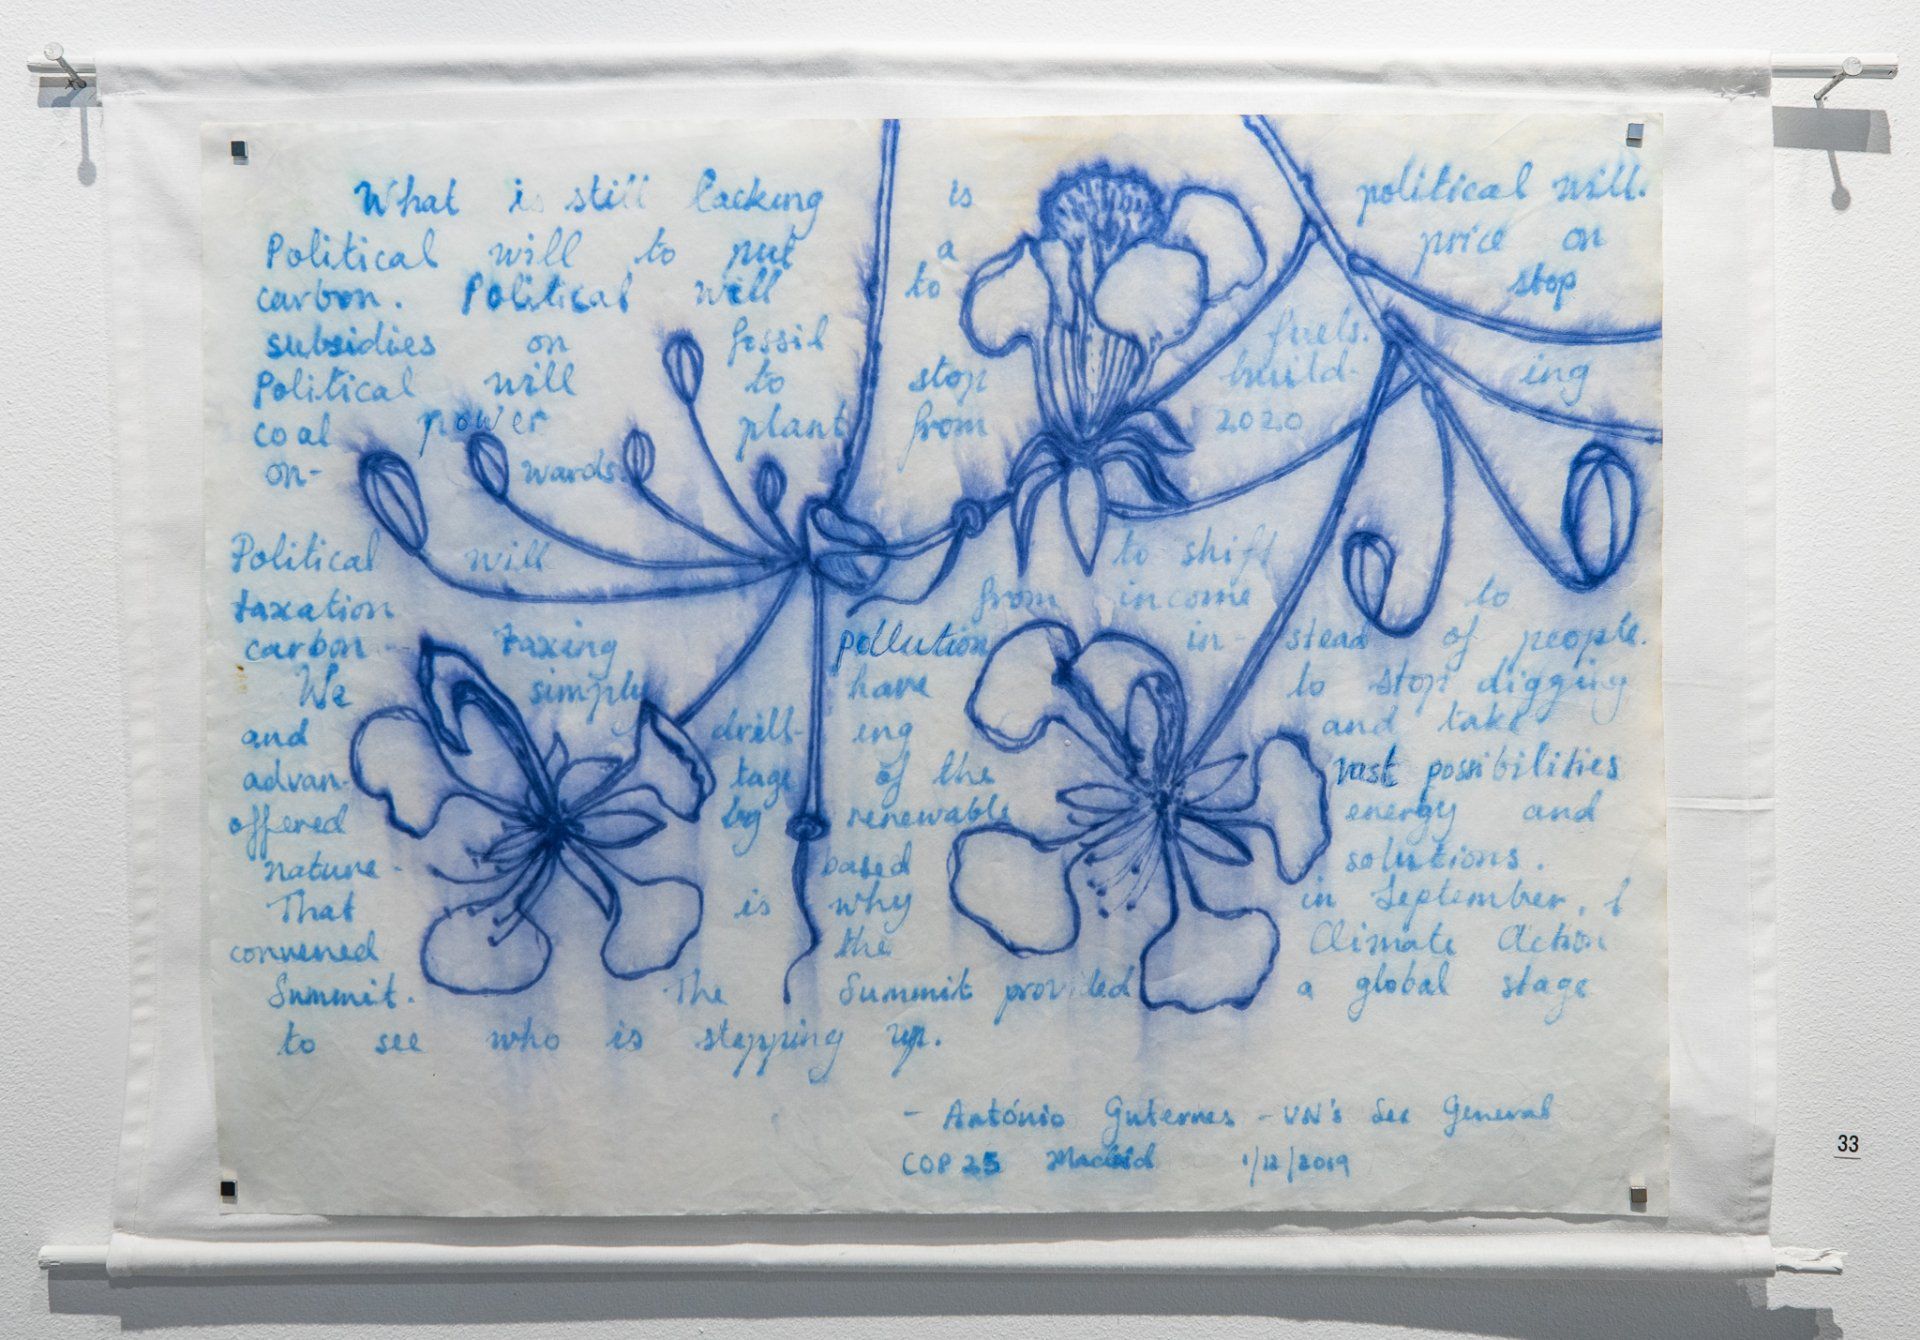 What is still lacking is political will.
Political will to put a price on
carbon. Political will to stop
subsidies on fossil fuels.
Political will to stop build- ing
coal power plant from 2020
on- wards.
Political will to shift
taxation from income to
carbon - Taxing pollution in- stead of people.
We simply have to stop digging
and drill- ing and take
advan- tage of the vast possibilities
offered by renewable energy and
nature - based solutions.
That is why in September, I
convened the Climate Action
Summit. The Summit provided a global stage
to see who is stepping up.
- António Guterres - UN's Sec General
COP 25 Madrid 1/12/2019
33